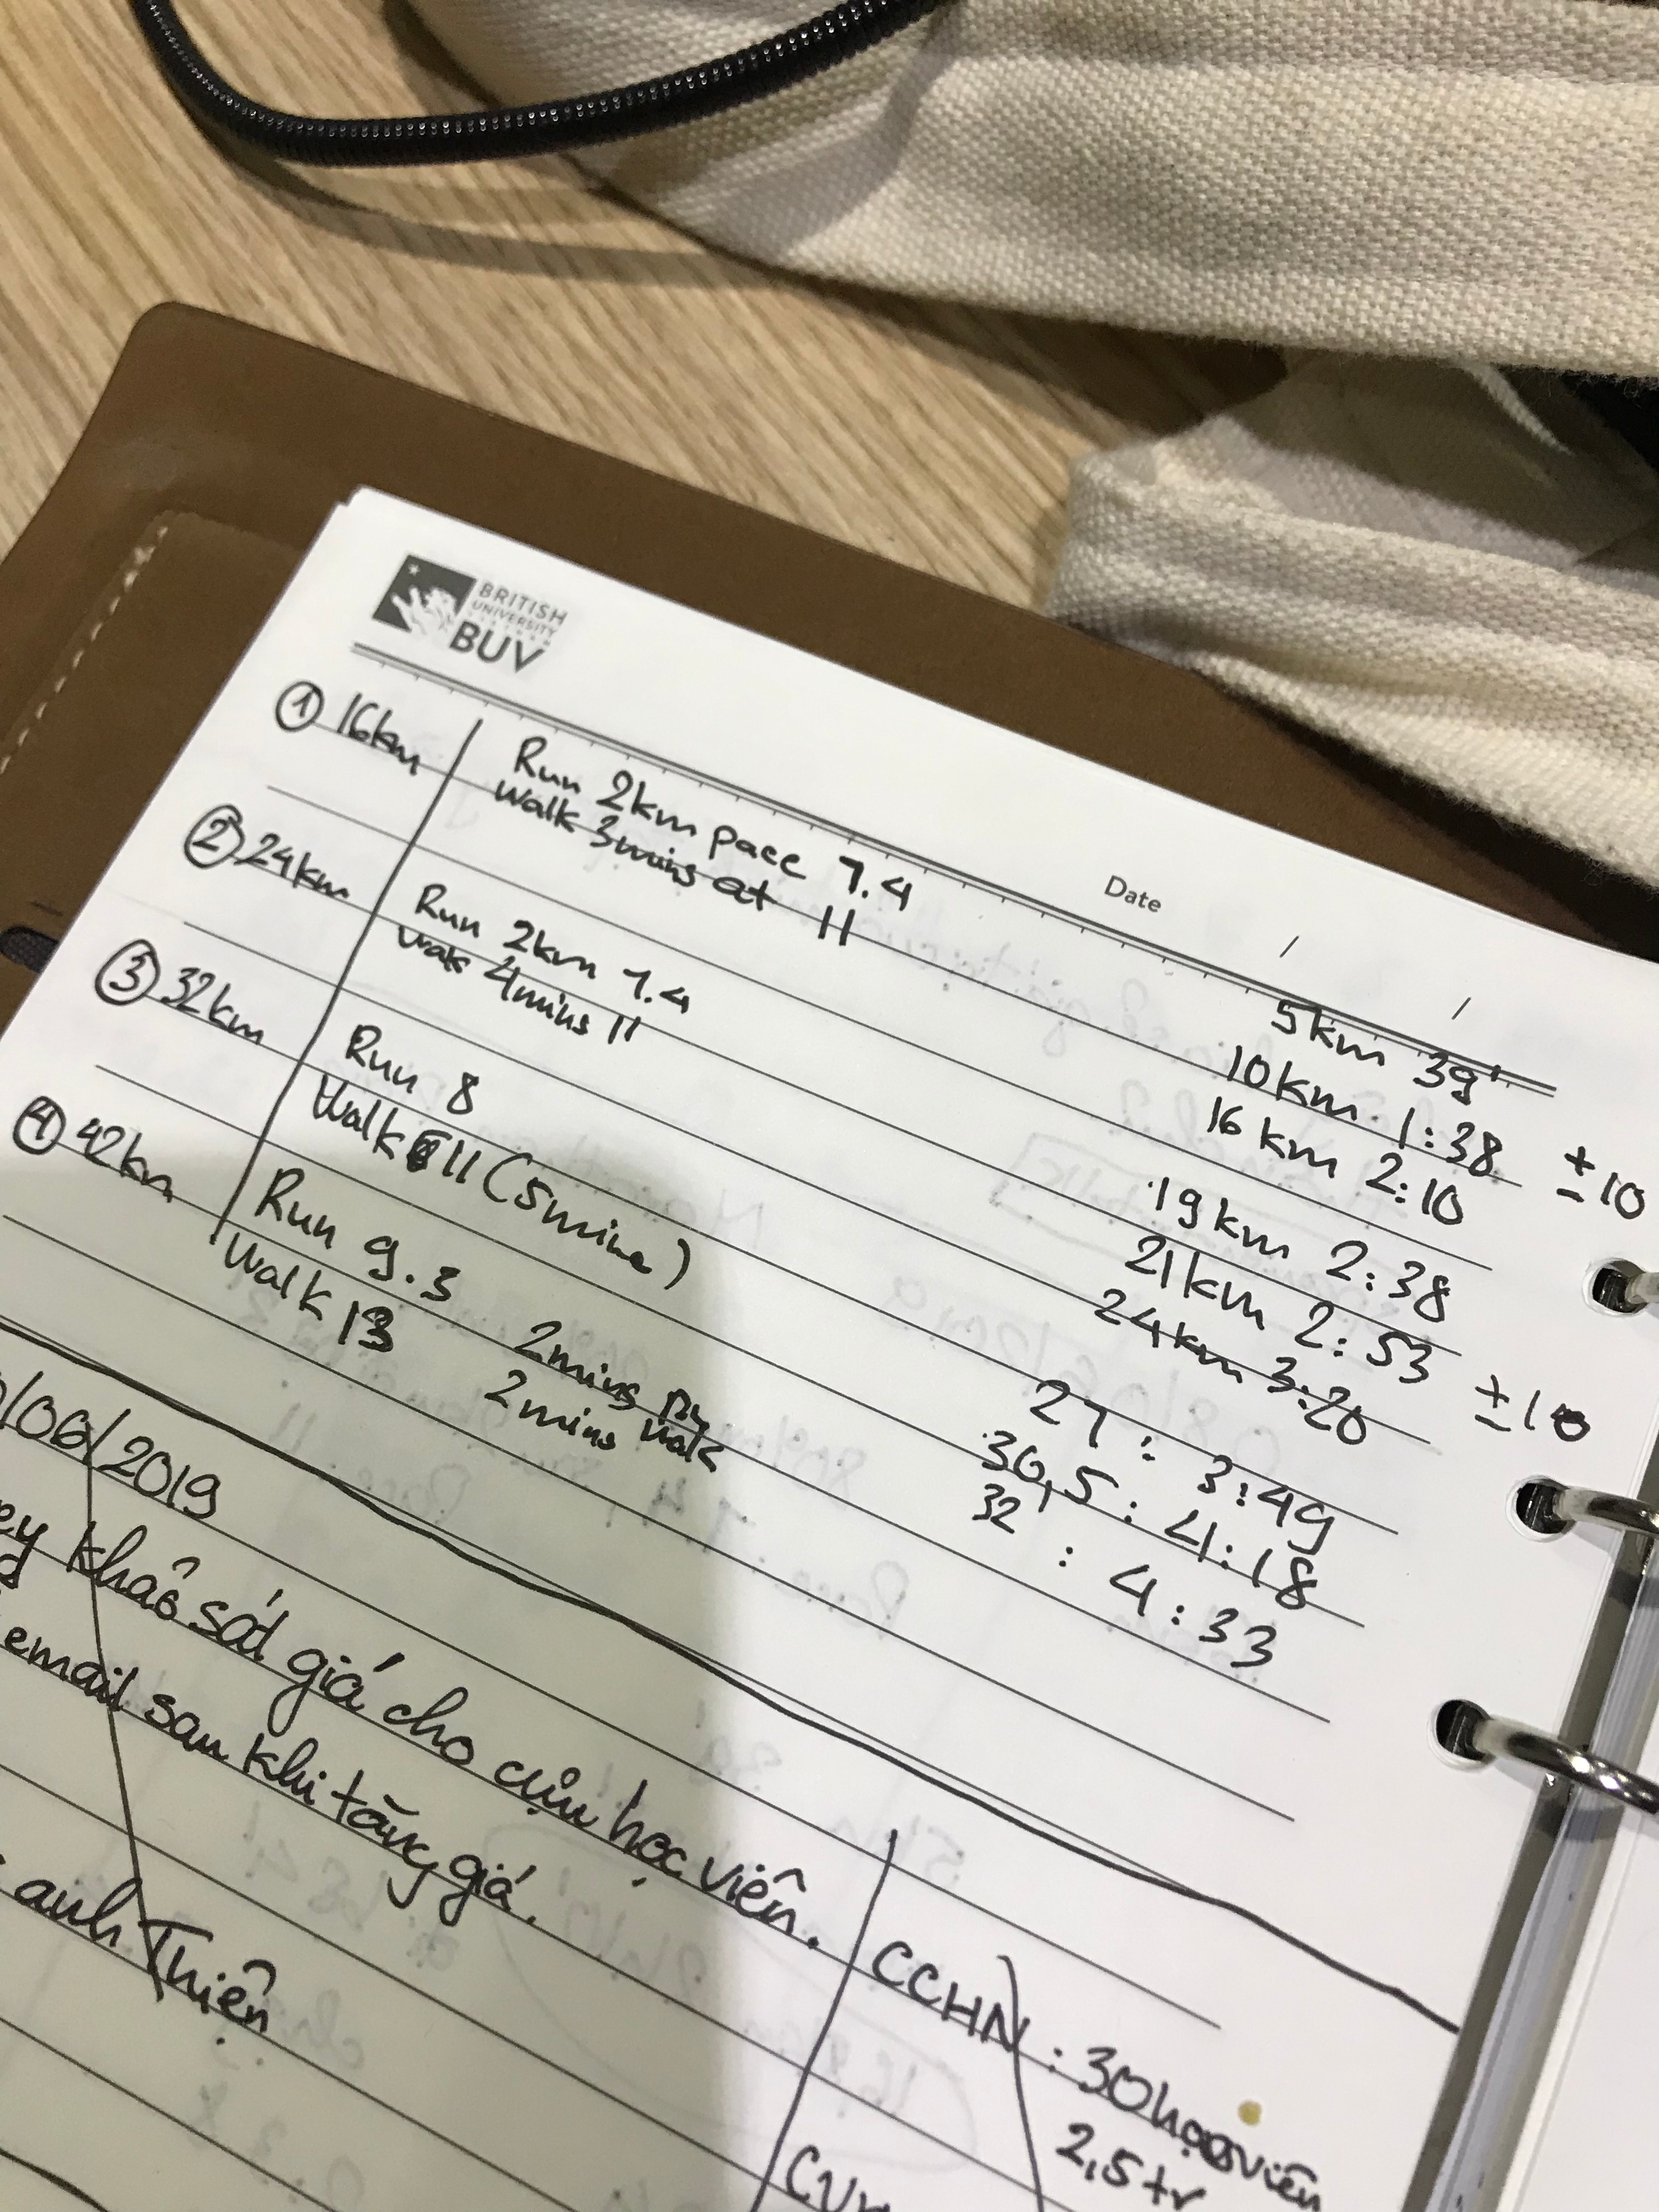 BRITISH
UNIVERSITY
BUV
Date / /
① 16km
Run 2km pace 7.4
Walk 3mins at 11
② 24km
Run 2km 7.4
Walk 4mins 11
③ 32km
Run 8
Walk 11 (5mins)
④ 42km
Run 9.3 2mins
Walk 13 2mins walk
5km 39'
10km 1:38
16km 2:10 ±10
19km 2:38
21km 2:53
24km 3:20 ±10
27 : 3:49
30,5 : 4:18
32 : 4:33
/06/2019
khảo sát giá cho cựu học viên.
email sau khi tăng giá.
anh Thiện
CCHN : 30 học viên
2,5 tr